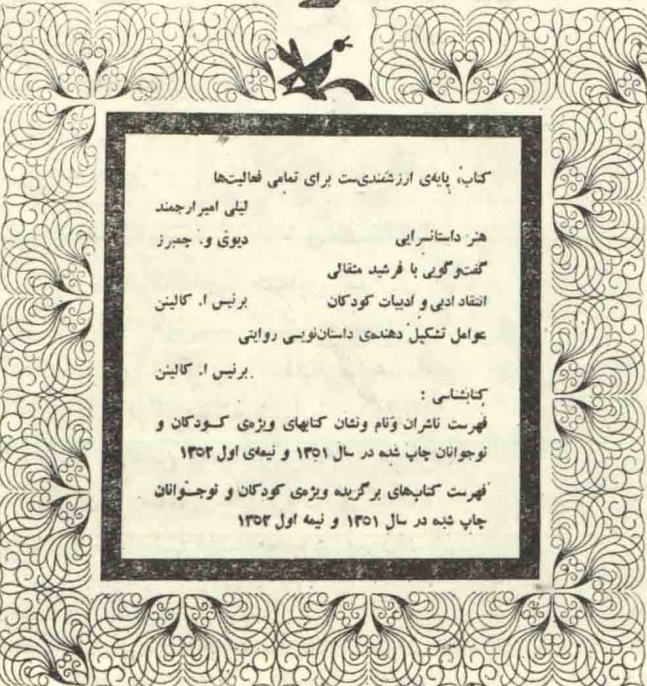 کتاب، پایه‌ی ارزشمندی‌ست برای تمامی فعالیت‌ها
لیلی امیرارجمند
هنر داستانسرایی دیوی و. چمبرز
گفت‌وگویی با فرشید مثقالی
انتقاد ادبی و ادبیات کودکان برنیس ا. کالینن
عوامل تشکیل دهنده‌ی داستان‌نویسی روایتی
برنیس ا. کالینن
کتابشناسی :
فهرست ناشران و نام ونشان کتابهای ویژه‌ی کــودکان و
نوجوانان چاپ شده در سال ۱۳۵۱ و نیمه‌ی اول ۱۳۵۲
فهرست کتاب‌های برگزیده ویژه‌ی کودکان و نوجــوانان
چاپ شده در سال ۱۳۵۱ و نیمه اول ۱۳۵۲